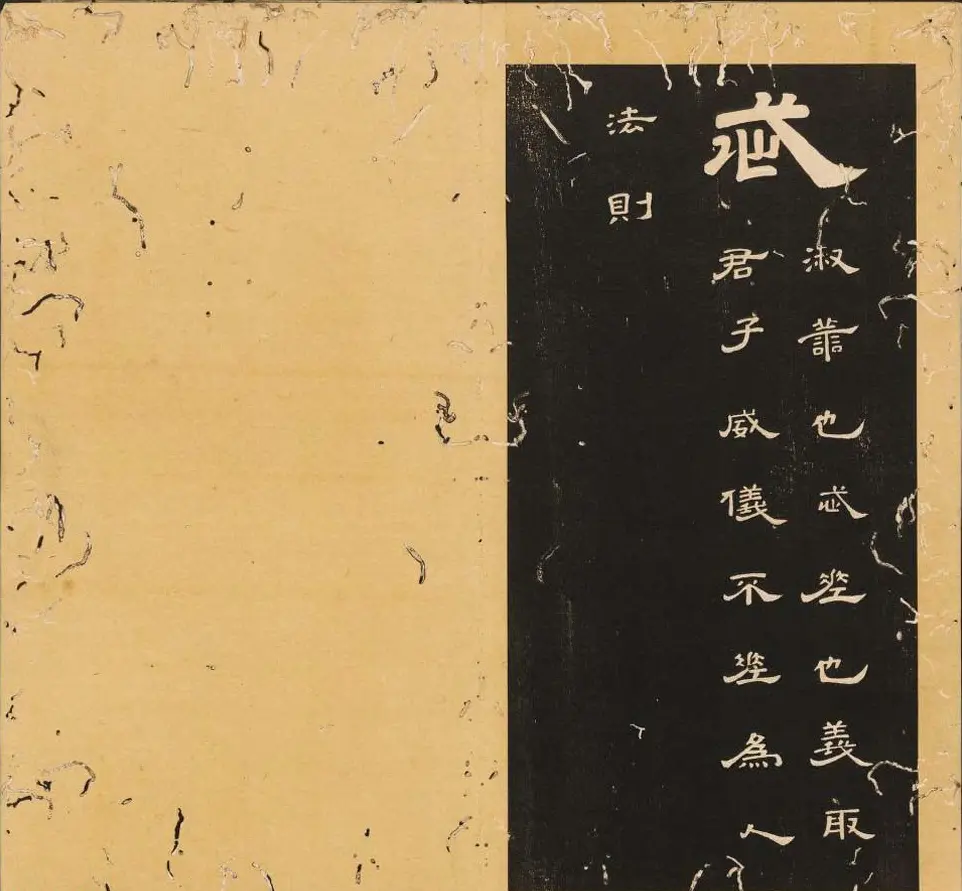 忒
淑善也忒差也義取
君子威儀不差為人
法則